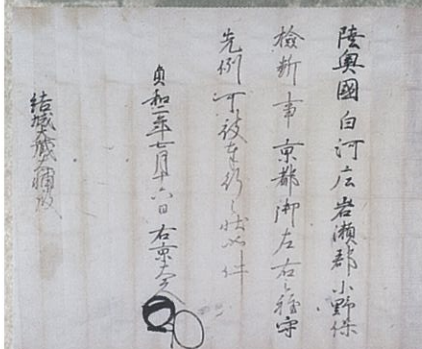 陸奥國白河庄岩瀬郡小野保
檢断事京都御左右之程守
先例可被奉行之状如件
貞和二年七月十六日 右京大夫
結城輔殿